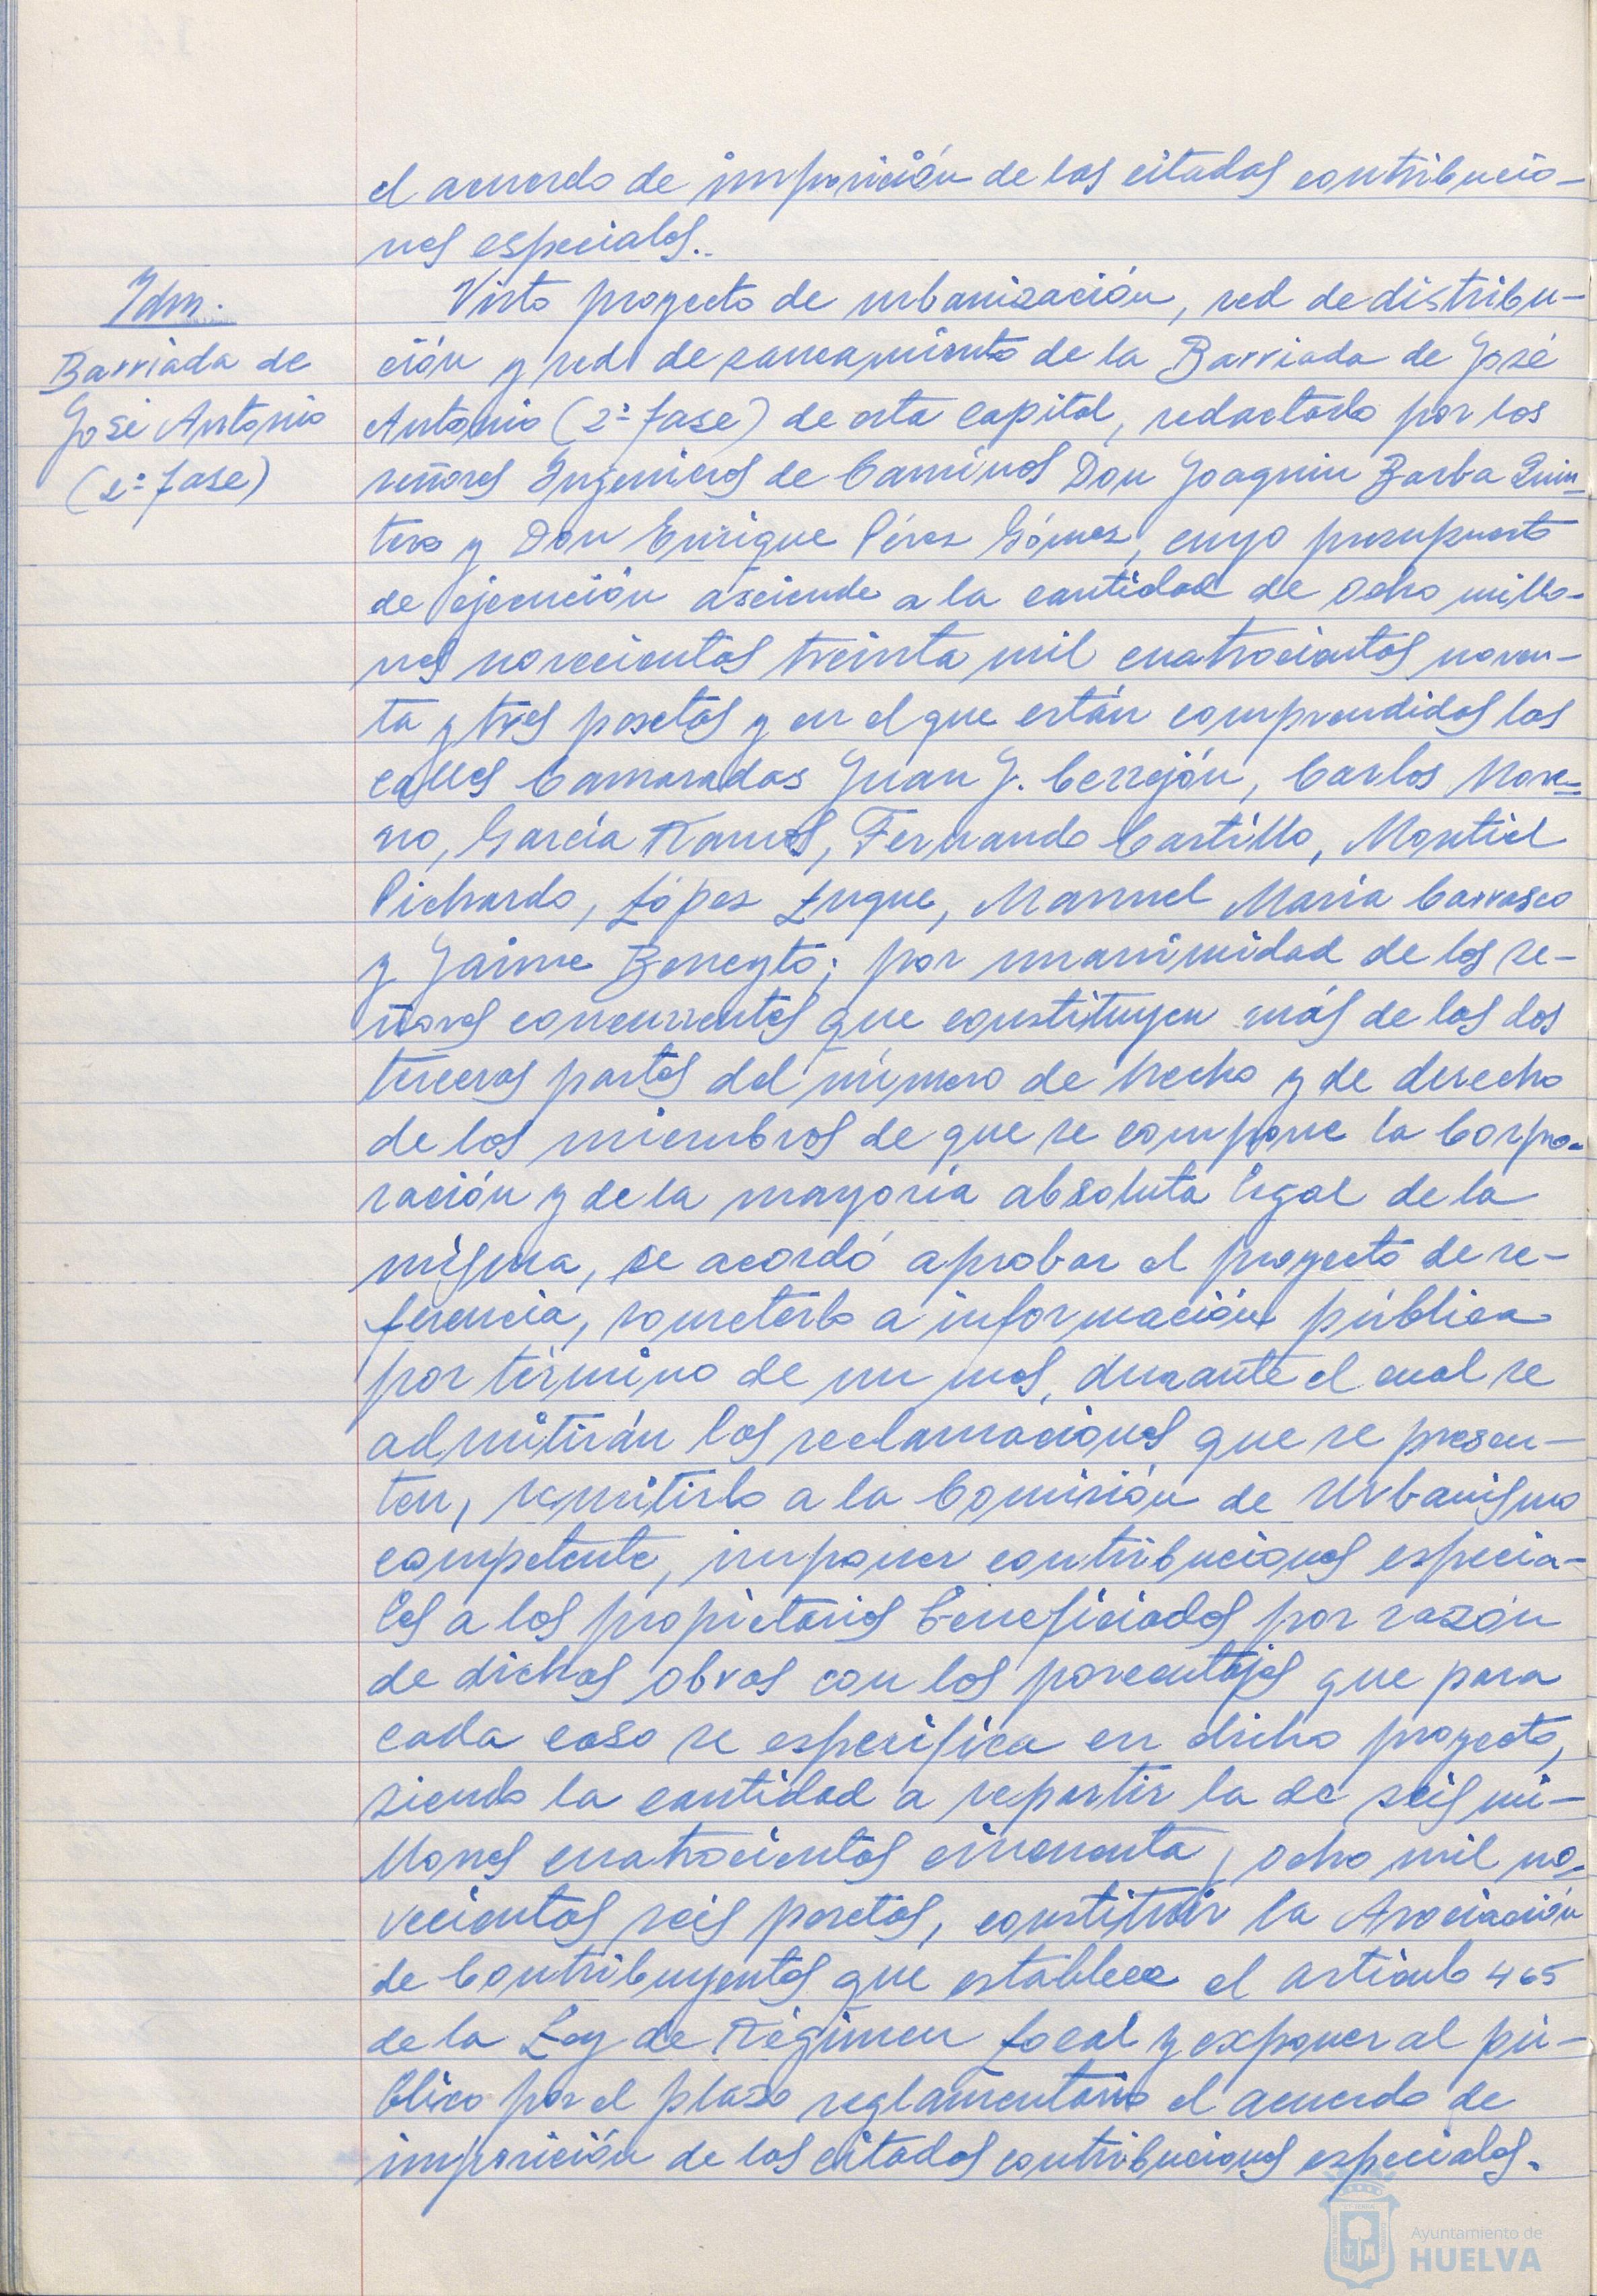 el acuerdo de imposición de las citadas contribucio-
nes especiales..
Idm.
Barriada de
José Antonio
(2ª fase)
Visto proyecto de urbanización, red de distribu-
ción y red de saneamiento de la Barriada de José
Antonio (2ª fase) de esta capital, redactado por los
señores Ingenieros de Caminos Don Joaquin Barba Quin-
tero y Don Enrique Pérez Gómez, cuyo presupuesto
de ejecución asciende a la cantidad de ocho millo-
nes novecientas treinta mil cuatrocientas noven-
ta y tres pesetas y en el que están comprendidas las
calles Camaradas Juan J. Cerrejón, Carlos More-
no, García Ramos, Fernando Castillo, Montiel
Pichardo, López Luque, Manuel María Carrasco
y Jaime Beneyto; por unanimidad de los se-
ñores concurrentes que constituyen más de las dos
terceras partes del número de hecho y de derecho
de los miembros de que se compone la Corpo-
ración y de la mayoría absoluta legal de la
misma, se acordó aprobar el proyecto de re-
ferencia, someterlo a información pública
por término de un mes, durante el cual se
admitirán las reclamaciones que se presen-
ten, remitirlo a la Comisión de Urbanismo
competente, imponer contribuciones especia-
les a los propietarios beneficiados por razón
de dichas obras con los porcentajes que para
cada caso se especifica en dicho proyecto,
siendo la cantidad a repartir la de seis mi-
llones cuatrocientas cincuenta y ocho mil no-
vecientas seis pesetas, constituir la Asociación
de Contribuyentes que establece el artículo 465
de la Ley de Régimen Local y exponer al pú-
blico por el plazo reglamentario el acuerdo de
imposición de las citadas contribuciones especiales.
Ayuntamiento de
HUELVA